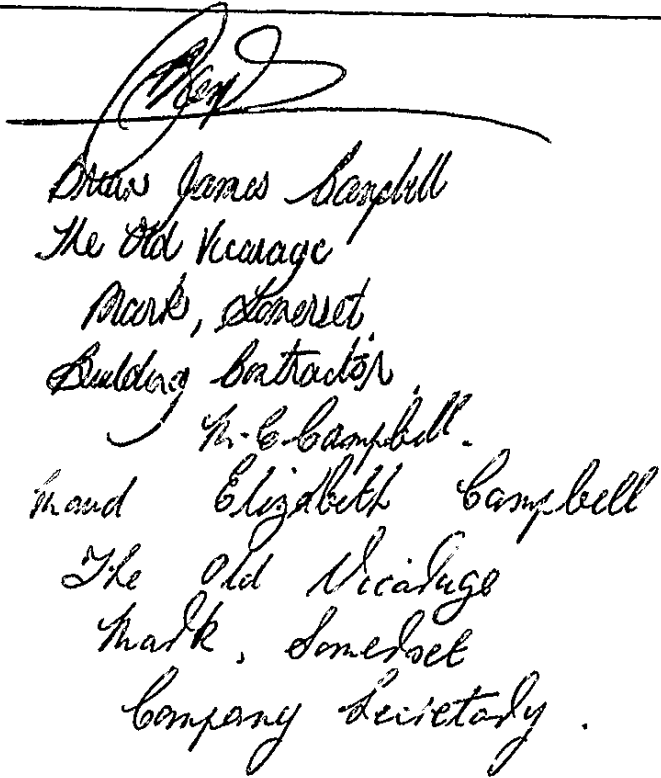 James Campbell
The Old Vicarage
Mark, Somerset.
Building Contractor.
M. E. Campbell.
Maud Elizabeth Campbell
The Old Vicarage
Mark, Somerset
Company Secretary.